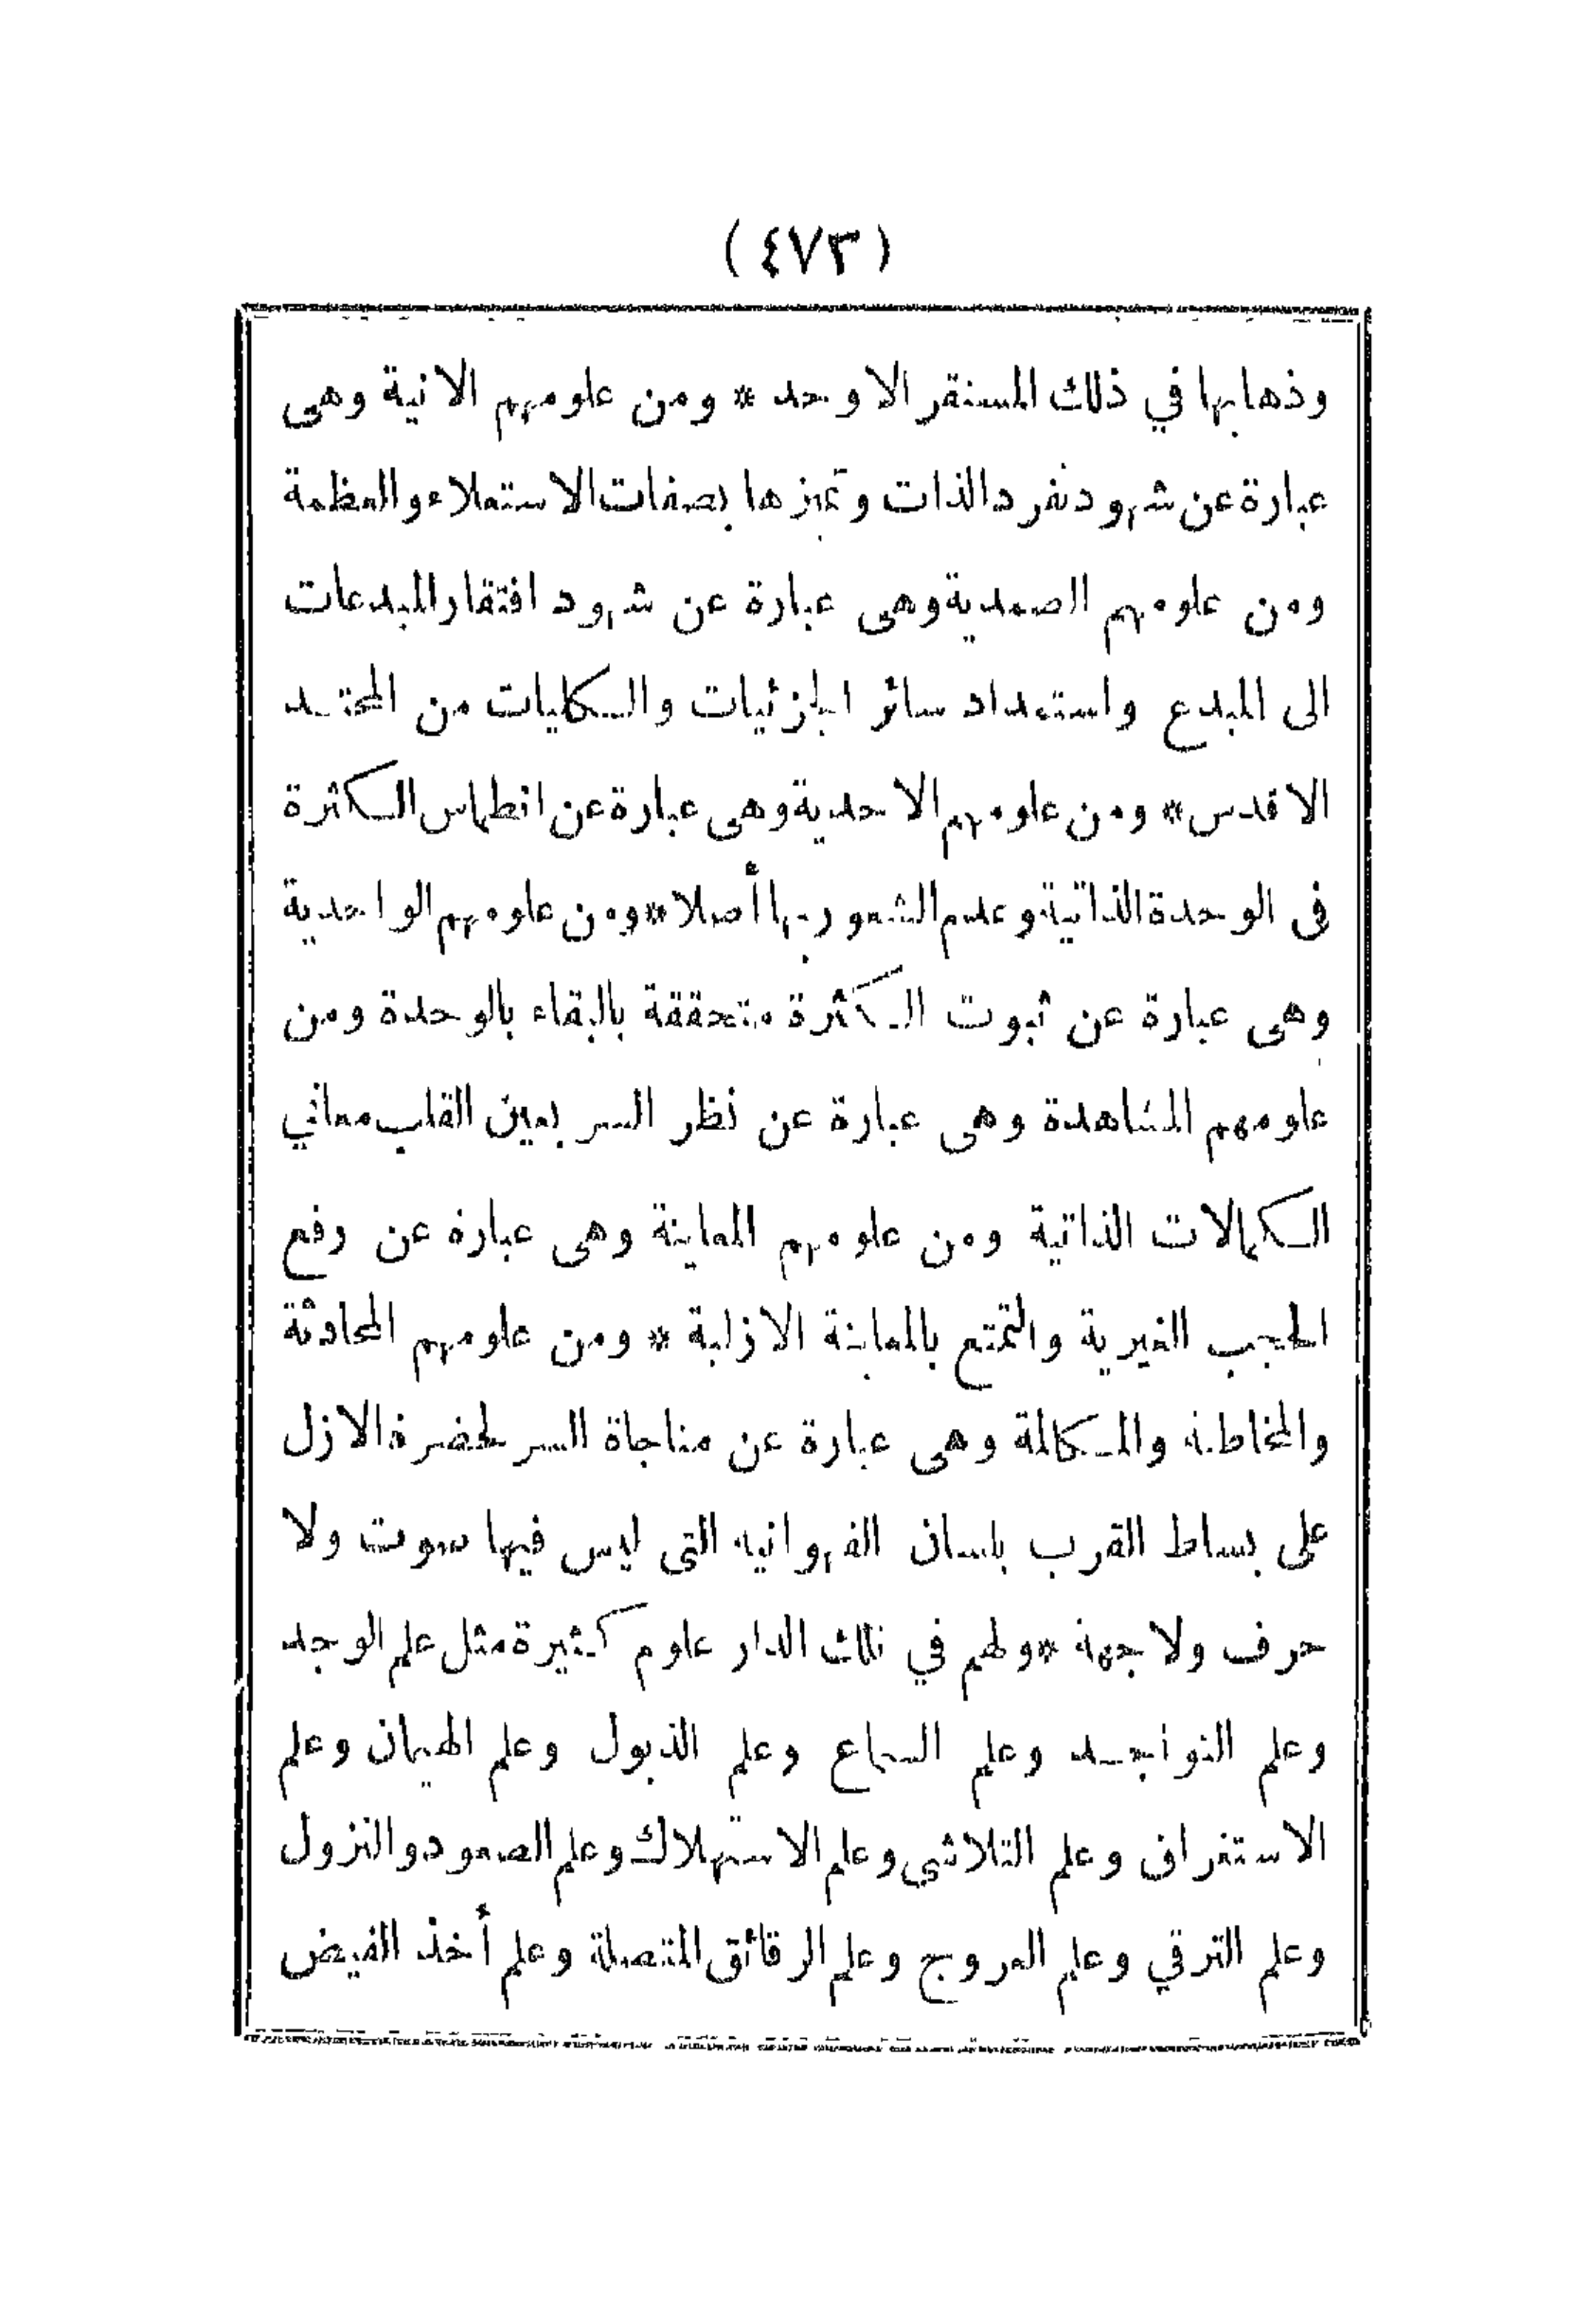 (٤٧٣)
وذهابها في ذلك المستقر الاوحد * ومن علومهم الانية وهى
عبارة عن شهود تفرد الذات وتميزها بصفات الاستعلاء والعظمة
ومن علومهم الصمدية وهى عبارة عن شهود افتقار المبدعات
الى المبدع واستمداد سائر الجزئيات والكليات من المحتد
الاقدس * ومن علومهم الاحدية وهى عبارة عن انطماس الكثرة
فى الوحدة الذاتية وعدم الشعور بها أصلا * ومن علومهم الواحدية
وهى عبارة عن ثبوت الكثرة متحققة بالبقاء بالوحدة ومن
علومهم المشاهدة وهى عبارة عن نظر السر بعين القلب معاني
الكمالات الذاتية ومن علومهم المعاينة وهى عبارة عن رفع
الحجب الغيرية والتمتع بالمعاينة الازلية * ومن علومهم المحادثة
والمخاطبة والمكالمة وهى عبارة عن مناجاة السر لحضرة الازل
على بساط القرب بلسان الفهوانيه التى ليس فيها صوت ولا
حرف ولا جهة * ولهم في تلك الدار علوم كثيرة مثل علم الوجد
وعلم التواجد وعلم السماع وعلم الذبول وعلم الهيمان وعلم
الاستغراق وعلم التلاشى وعلم الاستهلاك وعلم الصعود والنزول
وعلم الترقي وعلم العروج وعلم الرقائق المتصلة وعلم أخذ الفيض